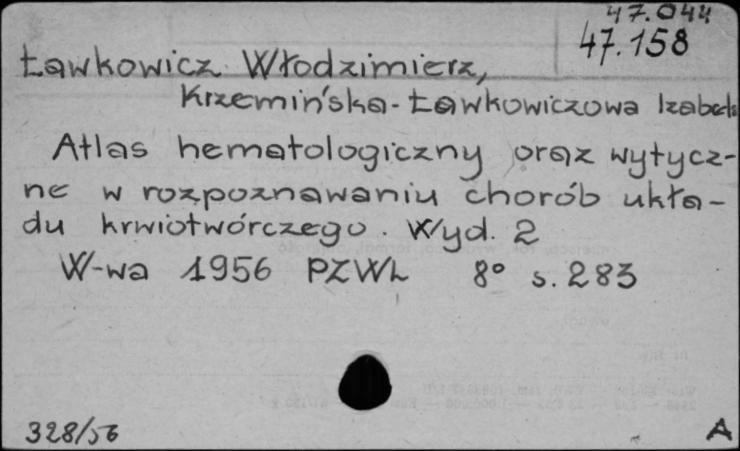 47.044
47.158
Ławkowicz Włodzimierz,
Krzemińska-Ławkowiczowa Izabela
Atlas hematologiczny oraz wytycz-
ne w rozpoznawaniu chorób ukła-
du krwiotwórczego. Wyd. 2
W-wa 1956 PZWL 8° s. 283
328/56
A